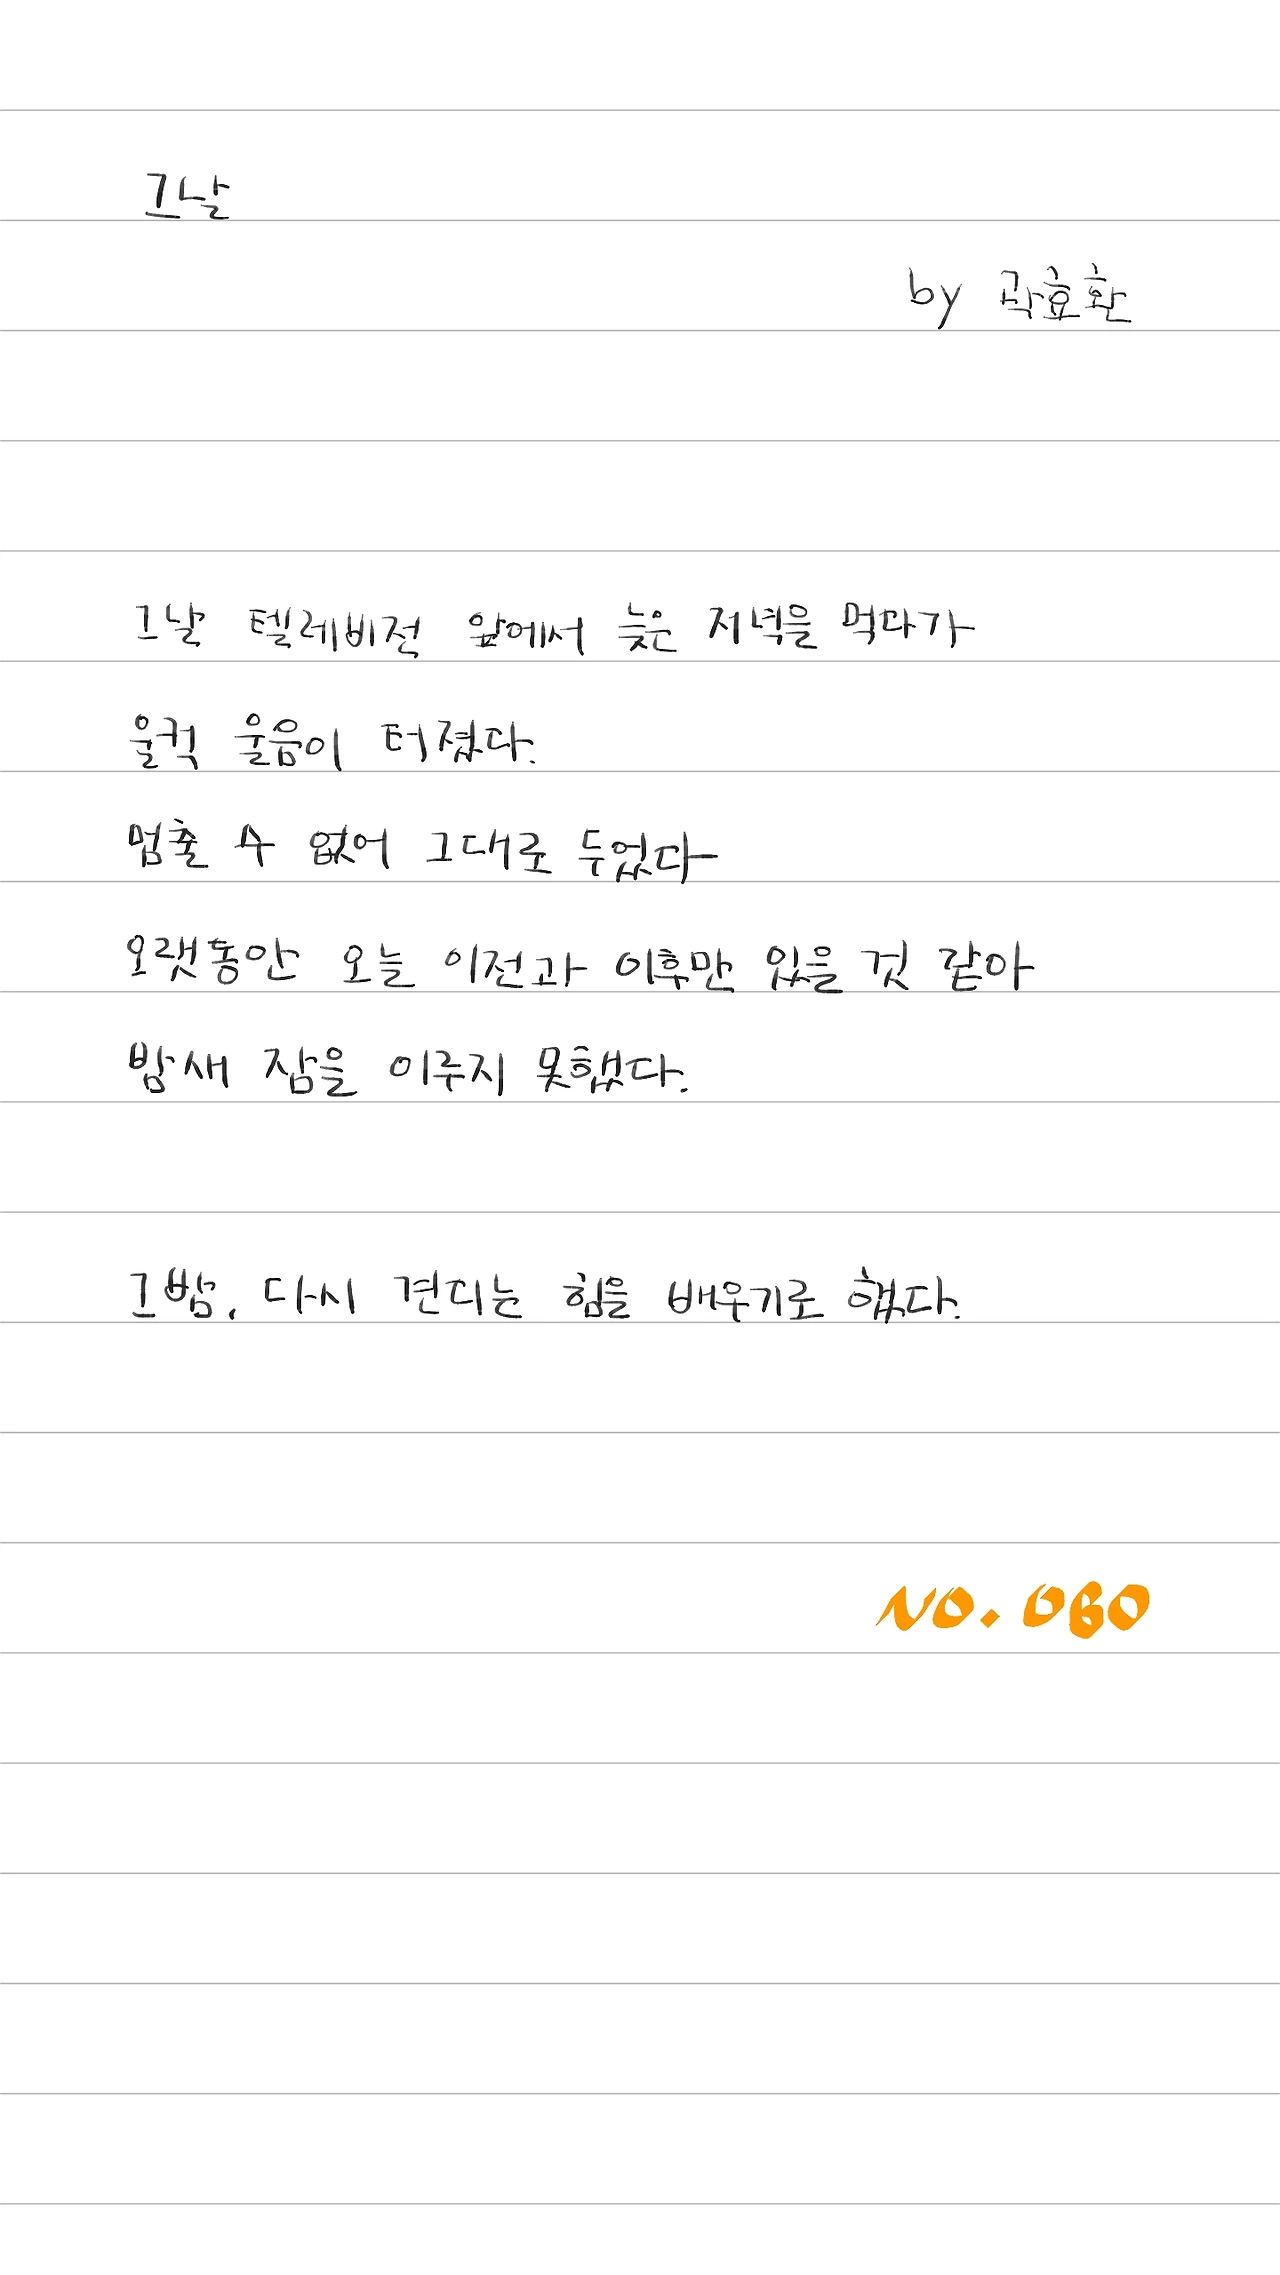 그날
by 곽효환
그날 텔레비전 앞에서 늦은 저녁을 먹다가
울컥 울음이 터졌다.
멈출 수 없어 그대로 두었다
오랫동안 오늘 이전과 이후만 있을 것 같아
밤새 잠을 이루지 못했다.
그 밤, 다시 견디는 힘을 배우기로 했다.
NO. 060